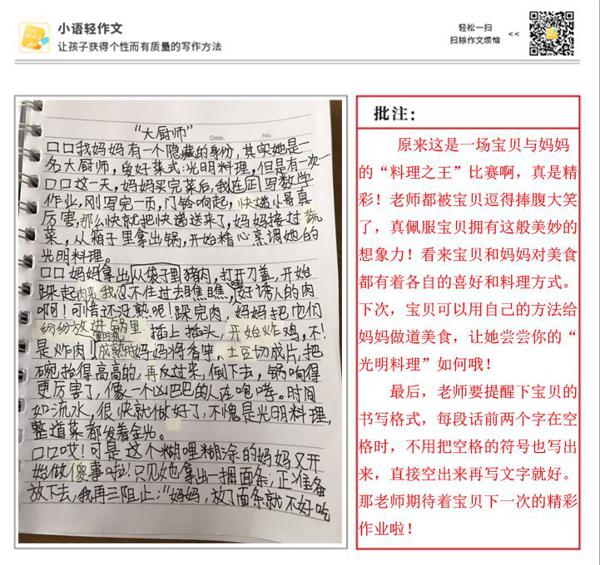 小语轻作文
让孩子获得个性而有质量的写作方法
轻松一扫
扫除作文烦恼 <<
“大厨师”
Date. No.
口口我妈妈有一个隐藏的身份，其实她是一
名大厨师，最好菜式：光明料理，但是有一次…
口口这一天，妈妈买完菜后，我在写数学
作业，刚写完一页，门铃响起，快递小哥真
厉害，那么快就把快递送来了，妈妈接过蔬
菜，从箱子里拿出锅，开始精心烹调她的
光明料理。
口口妈妈拿出从袋子到猪肉，打开刀盖，开始
跺起肉来，我忍不住过去瞧瞧，好诱人的肉
啊！可惜还没熟呢！跺完肉，妈妈把它们
纷纷放进锅里，插上插头，开始炸鸡，不！
是炸肉！成熟后妈妈将香审、土豆切成片，把
碗抬得高高的，再反过来，倒下去，锅响得
更厉害了，像一个凶巴巴的人在咆哮。时间
如流水，很快就做好了，不愧是光明料理，
整道菜都发着金光。
口口哎！可是这个糊哩糊涂的妈妈又开
始做傻事啦！只见她拿出一捆面条，正准备
放下去，我再三阻止：“妈妈，放了面条就不好吃
批注：
原来这是一场宝贝与妈妈
的“料理之王”比赛啊，真是精
彩！老师都被宝贝逗得捧腹大笑
了，真佩服宝贝拥有这般美妙的
想象力！看来宝贝和妈妈对美食
都有着各自的喜好和料理方式。
下次，宝贝可以用自己的方法给
妈妈做道美食，让她尝尝你的“
光明料理”如何哦！
最后，老师要提醒下宝贝的
书写格式，每段话前两个字在空
格时，不用把空格的符号也写出
来，直接空出来再写文字就好。
那老师期待着宝贝下一次的精彩
作业啦！